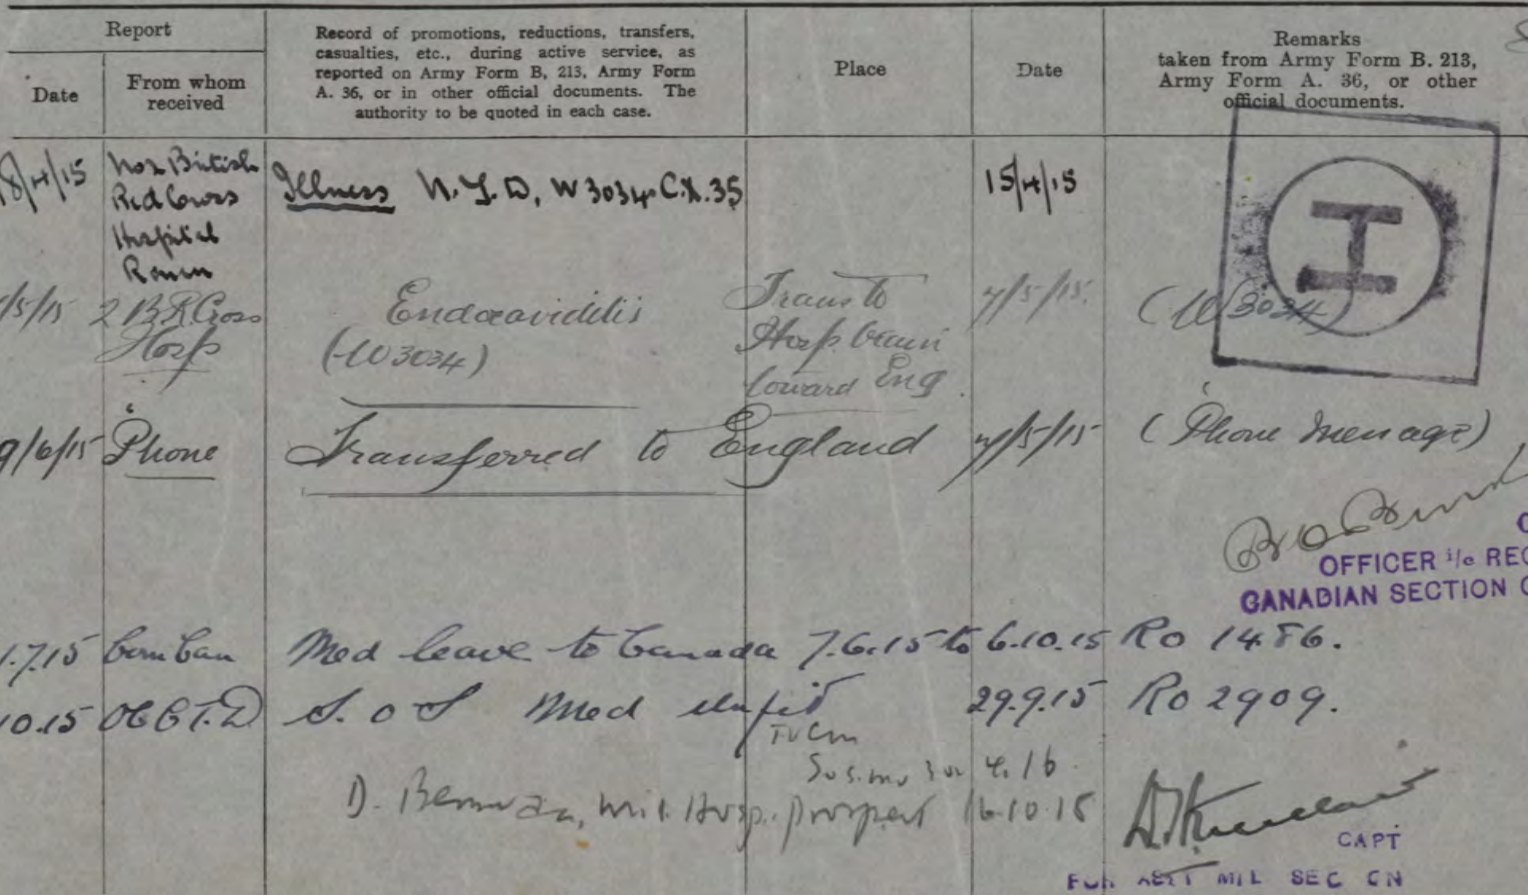 Report
Date
From whom
received
Record of promotions, reductions, transfers,
casualties, etc., during active service, as
reported on Army Form B, 213, Army Form
A. 36, or in other official documents. The
authority to be quoted in each case.
Place
Date
Remarks
taken from Army Form B. 213,
Army Form A. 36, or other
official documents.
8/4/15 No 2 British Illness N.Y.D. W3034 C.X.35 15/4/15
Red Cross
Hospital
Rouen
H
/5/15 2 B R Cross Endocarditis Trans to 7/5/15 (W3034)
Hosp (W3034) Hosp train
toward Eng.
9/6/15 Phone Transferred to England 7/5/15 (Phone message)
OFFICER i/c REC
CANADIAN SECTION G
1.7.15 Com Can Med leave to Canada 7.6.15 to 6.10.15 Ro 1486.
10.15 S.O.S Med Unfit 29.9.15 Ro 2909.
4.16
D. Bermuda, Mil. Hosp. Prospect 16.10.15
CAPT
FOR ASST MIL SEC CN